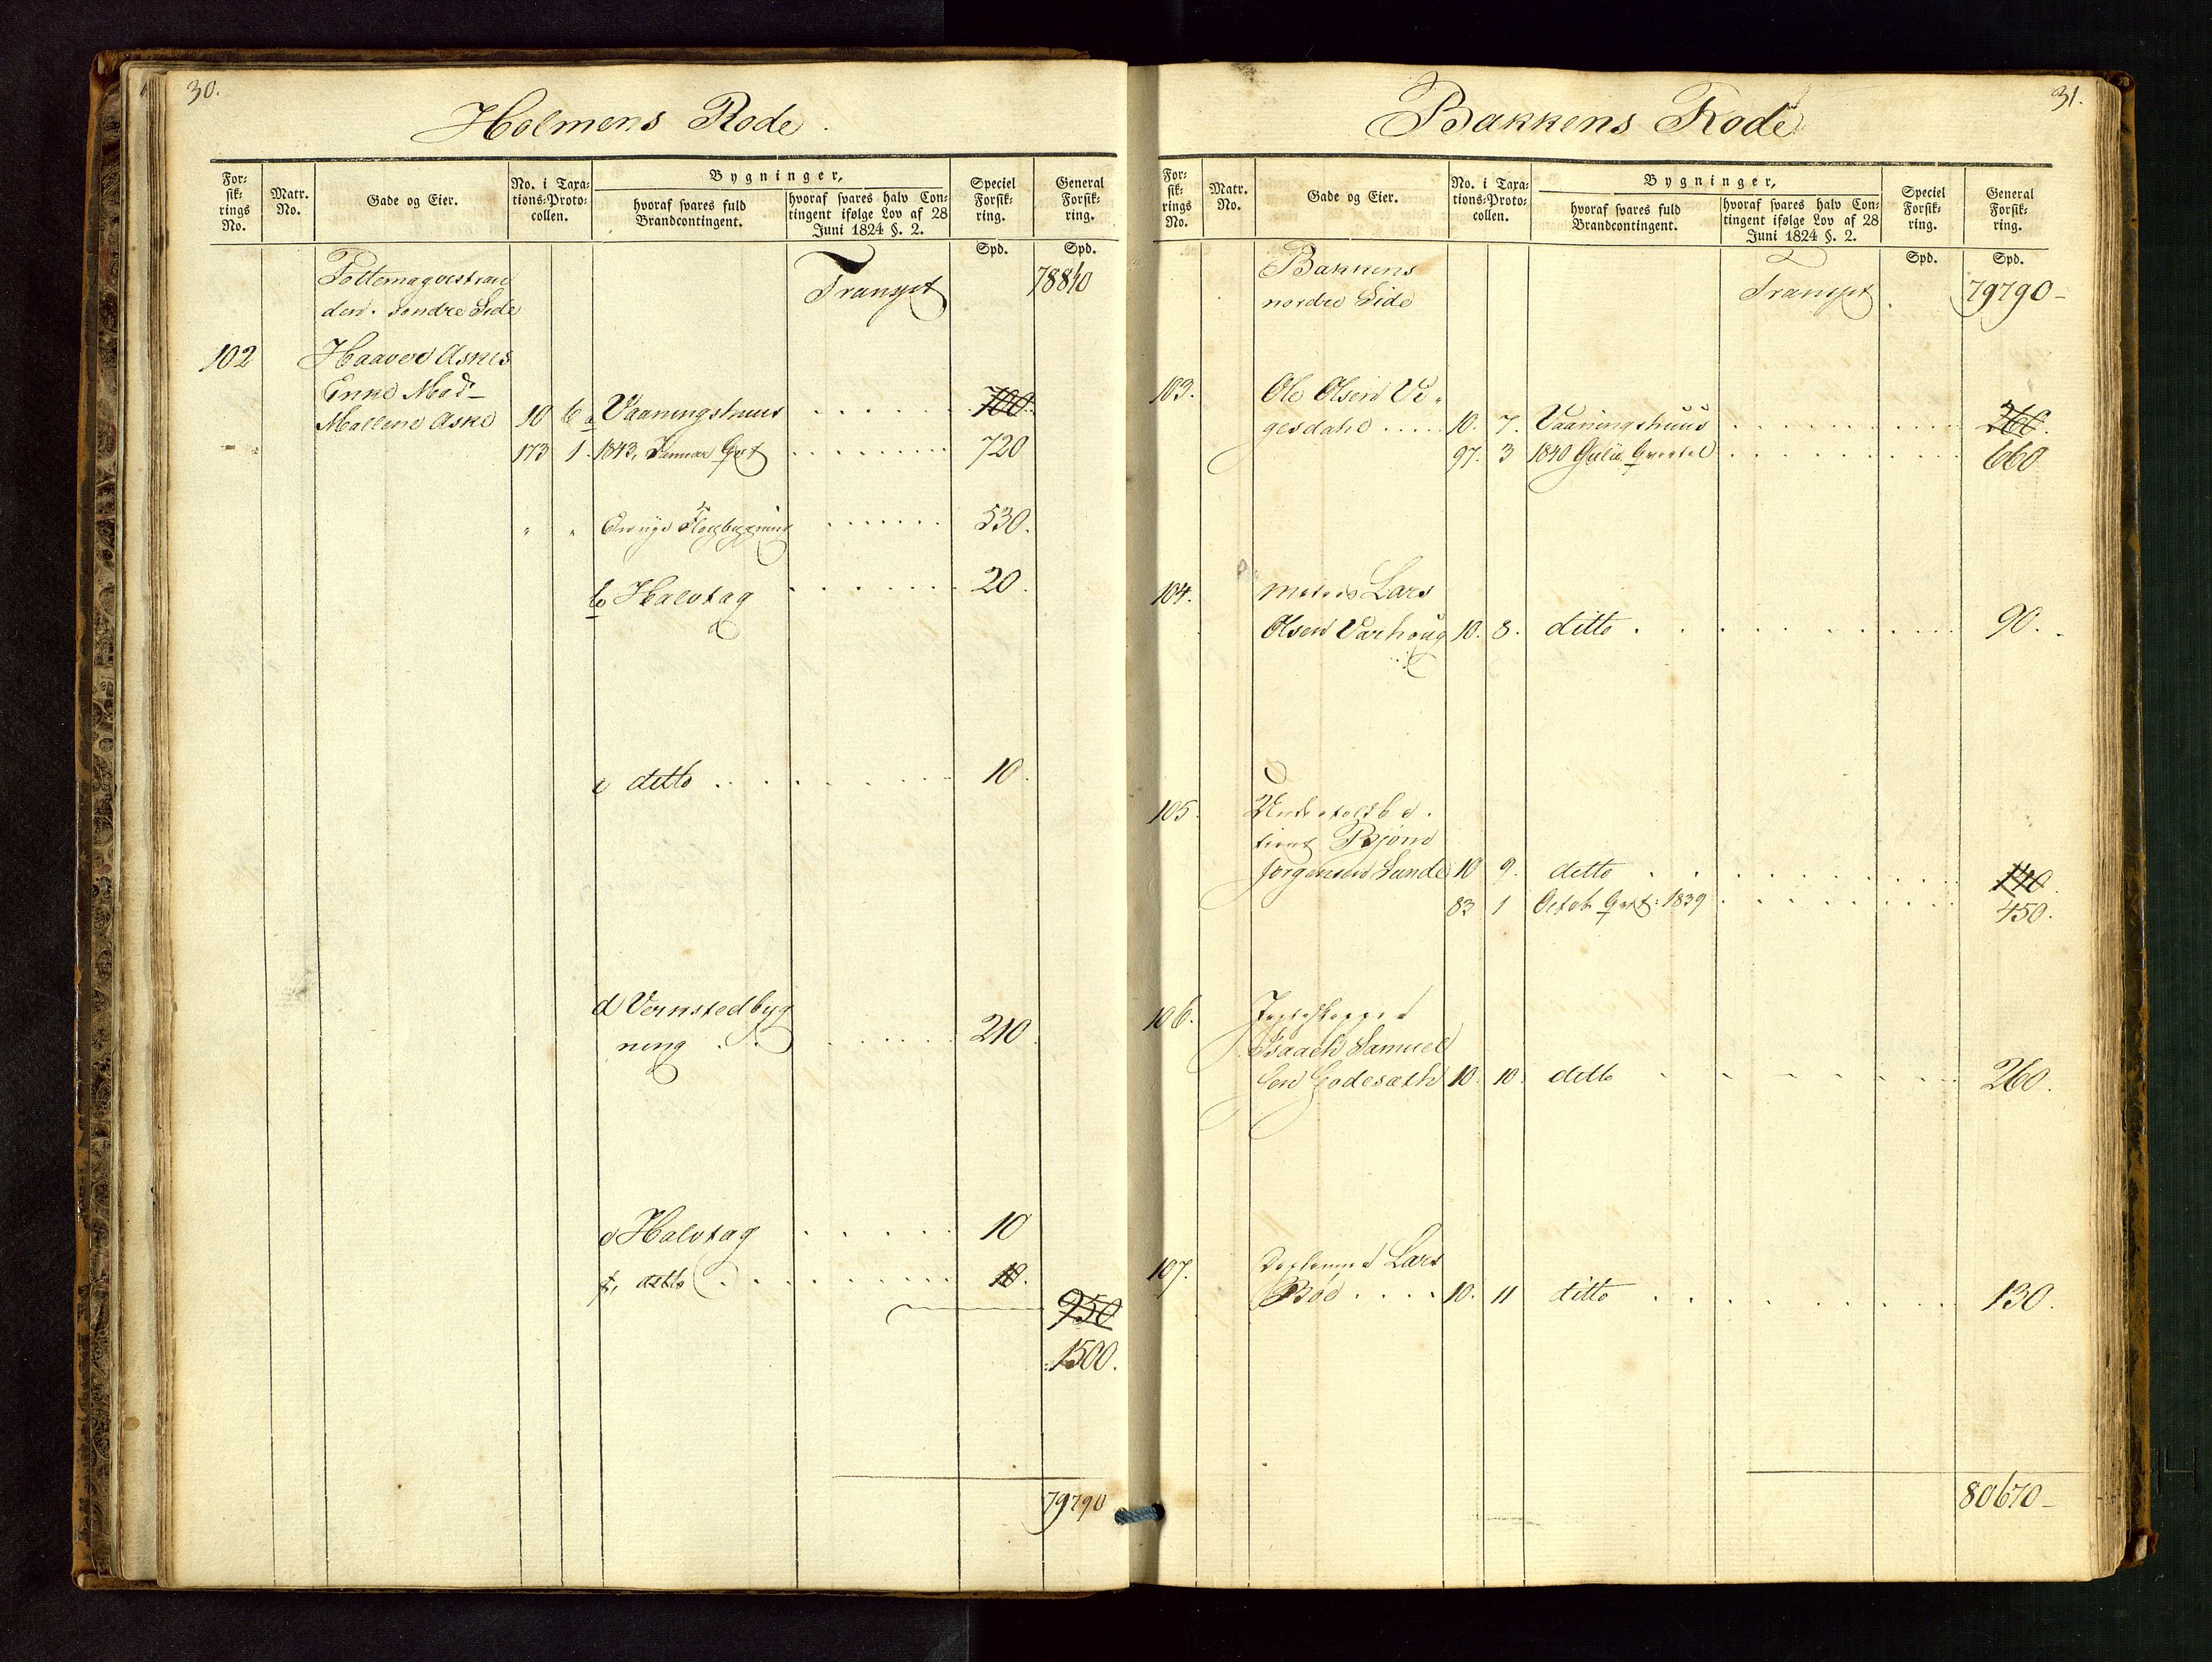 30.
Holmens Rode.
For-
sik-
rings
No.
Matr.
No.
Gade og Eier.
No. i Taxa-
tions-Proto-
collen.
Bygninger,
hvoraf svares fuld
Brandcontingent.
hvoraf svares halv Con-
tingent ifølge Lov af 28
Juni 1824 §. 2.
Speciel
Forsik-
ring.
General
Forsik-
ring.
Spd. Spd.
Pottemagerstran
den. søndre Side
Transpt 78840
102 Haaver Askes
Enke Mad-
Mallene Aske 10 6 a Vaaningshuus 700
173 1. 1843, Januar Qvt 720
" " En nye Fløybygning 530.
b Halvtag 20.
c ditto 10.
d Vernstedbyg
ning 210.
e Halvtag 10
f, ditto 10.
950
1500.
79790
31.
Bakkens Rode
For-
sik-
rings
No.
Matr.
No.
Gade og Eier.
No. i Taxa-
tions-Proto-
collen.
Bygninger,
hvoraf svares fuld
Brandcontingent.
hvoraf svares halv Con-
tingent ifølge Lov af 28
Juni 1824 §. 2.
Speciel
Forsik-
ring.
General
Forsik-
ring.
Spd. Spd.
Bakkens
nordre Side
Transpt. 79790-
103. Ole Olsen
gesdahl 10. 7. Vaaningshuus 260.
97. 3 1840 Julii Qvartal 660
104. Lars
Olsen Varhoug 10. 8. ditto 90.
105.
Bjørn
Jørgensen Lunde 10 9. ditto 140.
83 1 Octob Qvrt: 1839 450.
106.
Isaach Samuel
sen Godesæth 10. 10. ditto 260.
107. Lars
Bøe 10. 11 ditto 130.
80670-